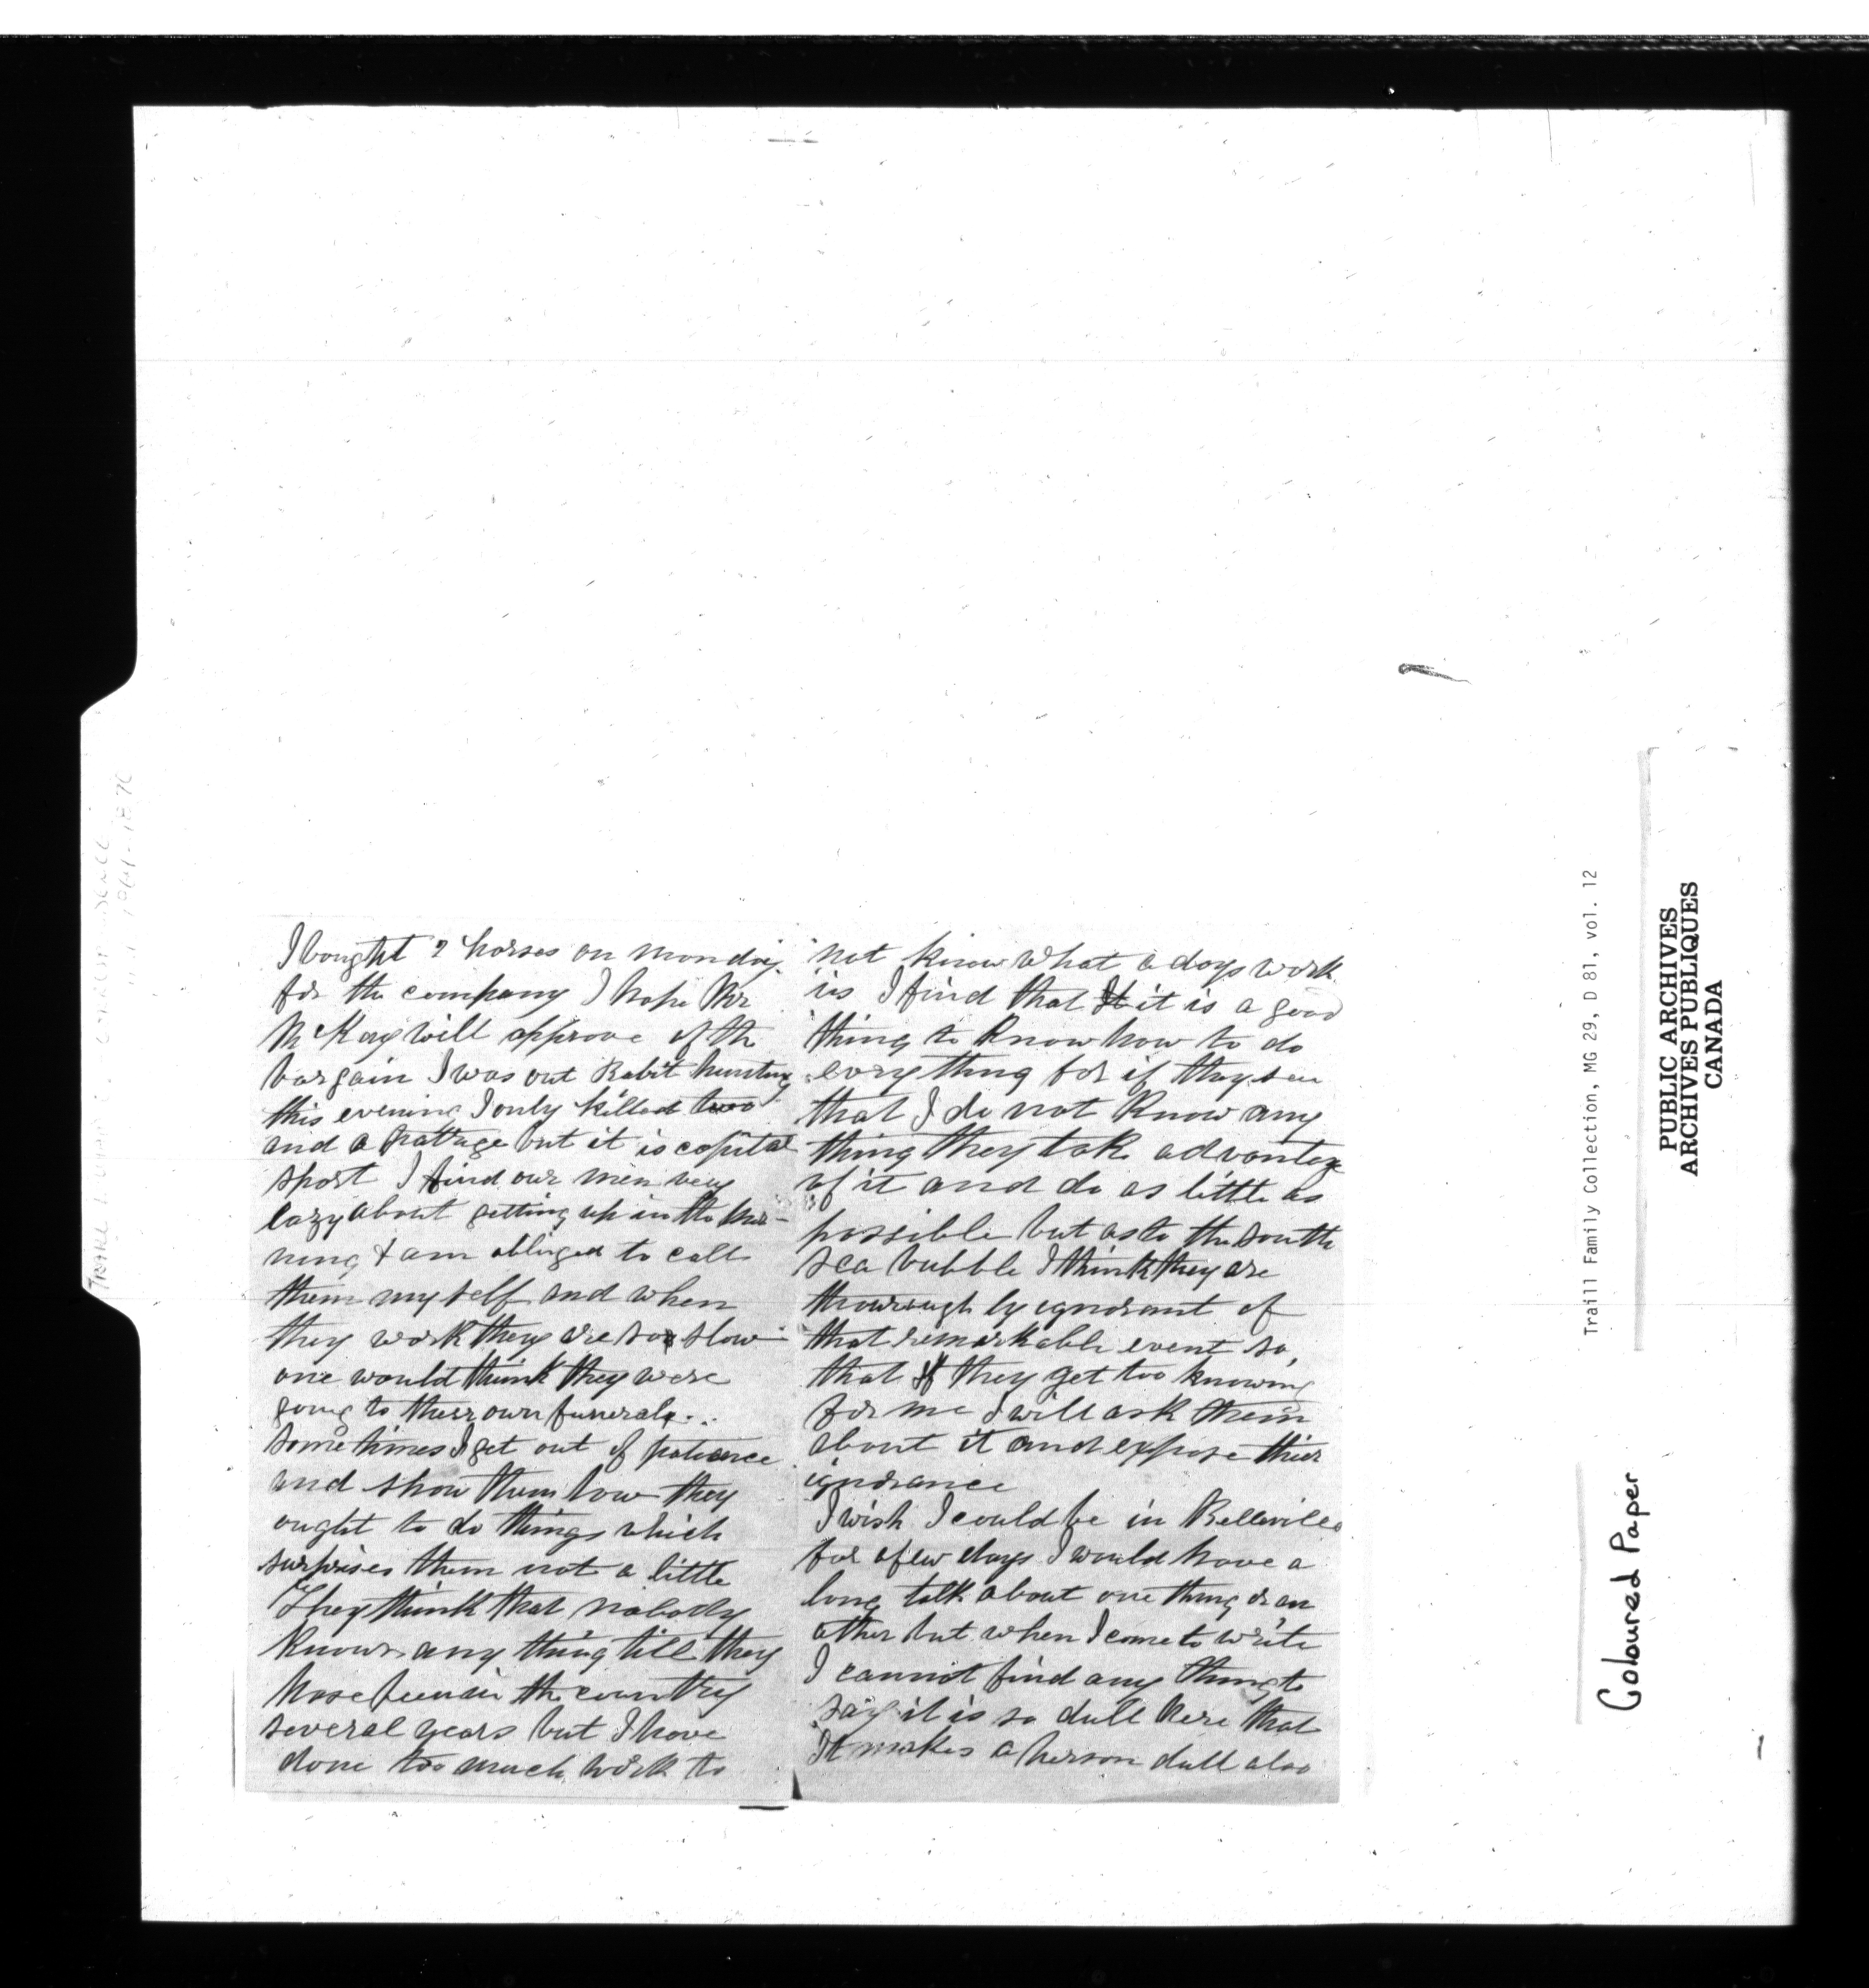 I bought 2 horses on monday
for the company I hope Mr
McKay will approve of the
bargain I was out Rabit hunting
this evening I only killed two
and a Pattrage but it is capital
sport I find our men very
lazy about getting up in the mor-
ning & am obliged to call
them my self and when
they work they are so slow
one would think they were
going to their own funerals..
Sometimes I get out of patience
and show them how they
ought to do things which
surprises them not a little
They think that nobody
knows any thing till they
have been in the country
several years but I have
done too much work to
not know what a days work
is I find that it is a good
thing to Know how to do
everything for if they see
that I do not Know any
thing they take advantage
of it and do as little as
possible but as to the South
Sea bubble I think they are
thourough ly ignorant of
that remarkable event so,
that if they get too knowing
for me I will ask them
about it and expose thier
ignorance
I wish I could be in Belleville
for a few days I would have a
long talk about one thing or an
other but when I come to write
I cannot find any thing to
say it is so dull here that
It makes a person dull also
Traill Family Collection, MG 29, D 81, vol. 12
PUBLIC ARCHIVES
ARCHIVES PUBLIQUES
CANADA
Coloured Paper